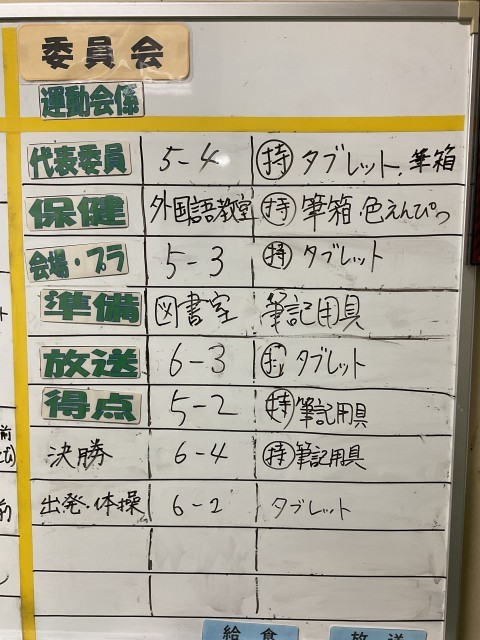 委員会
運動会係
代表委員 5-4 持 タブレット、筆箱
保健 外国語教室 持 筆箱・色えんぴつ
会場・プラ 5-3 持 タブレット
準備 図書室 筆記用具
放送 6-3 持 タブレット
得点 5-2 持 筆記用具
決勝 6-4 持 筆記用具
出発・体操 6-2 タブレット
前
給食 放送